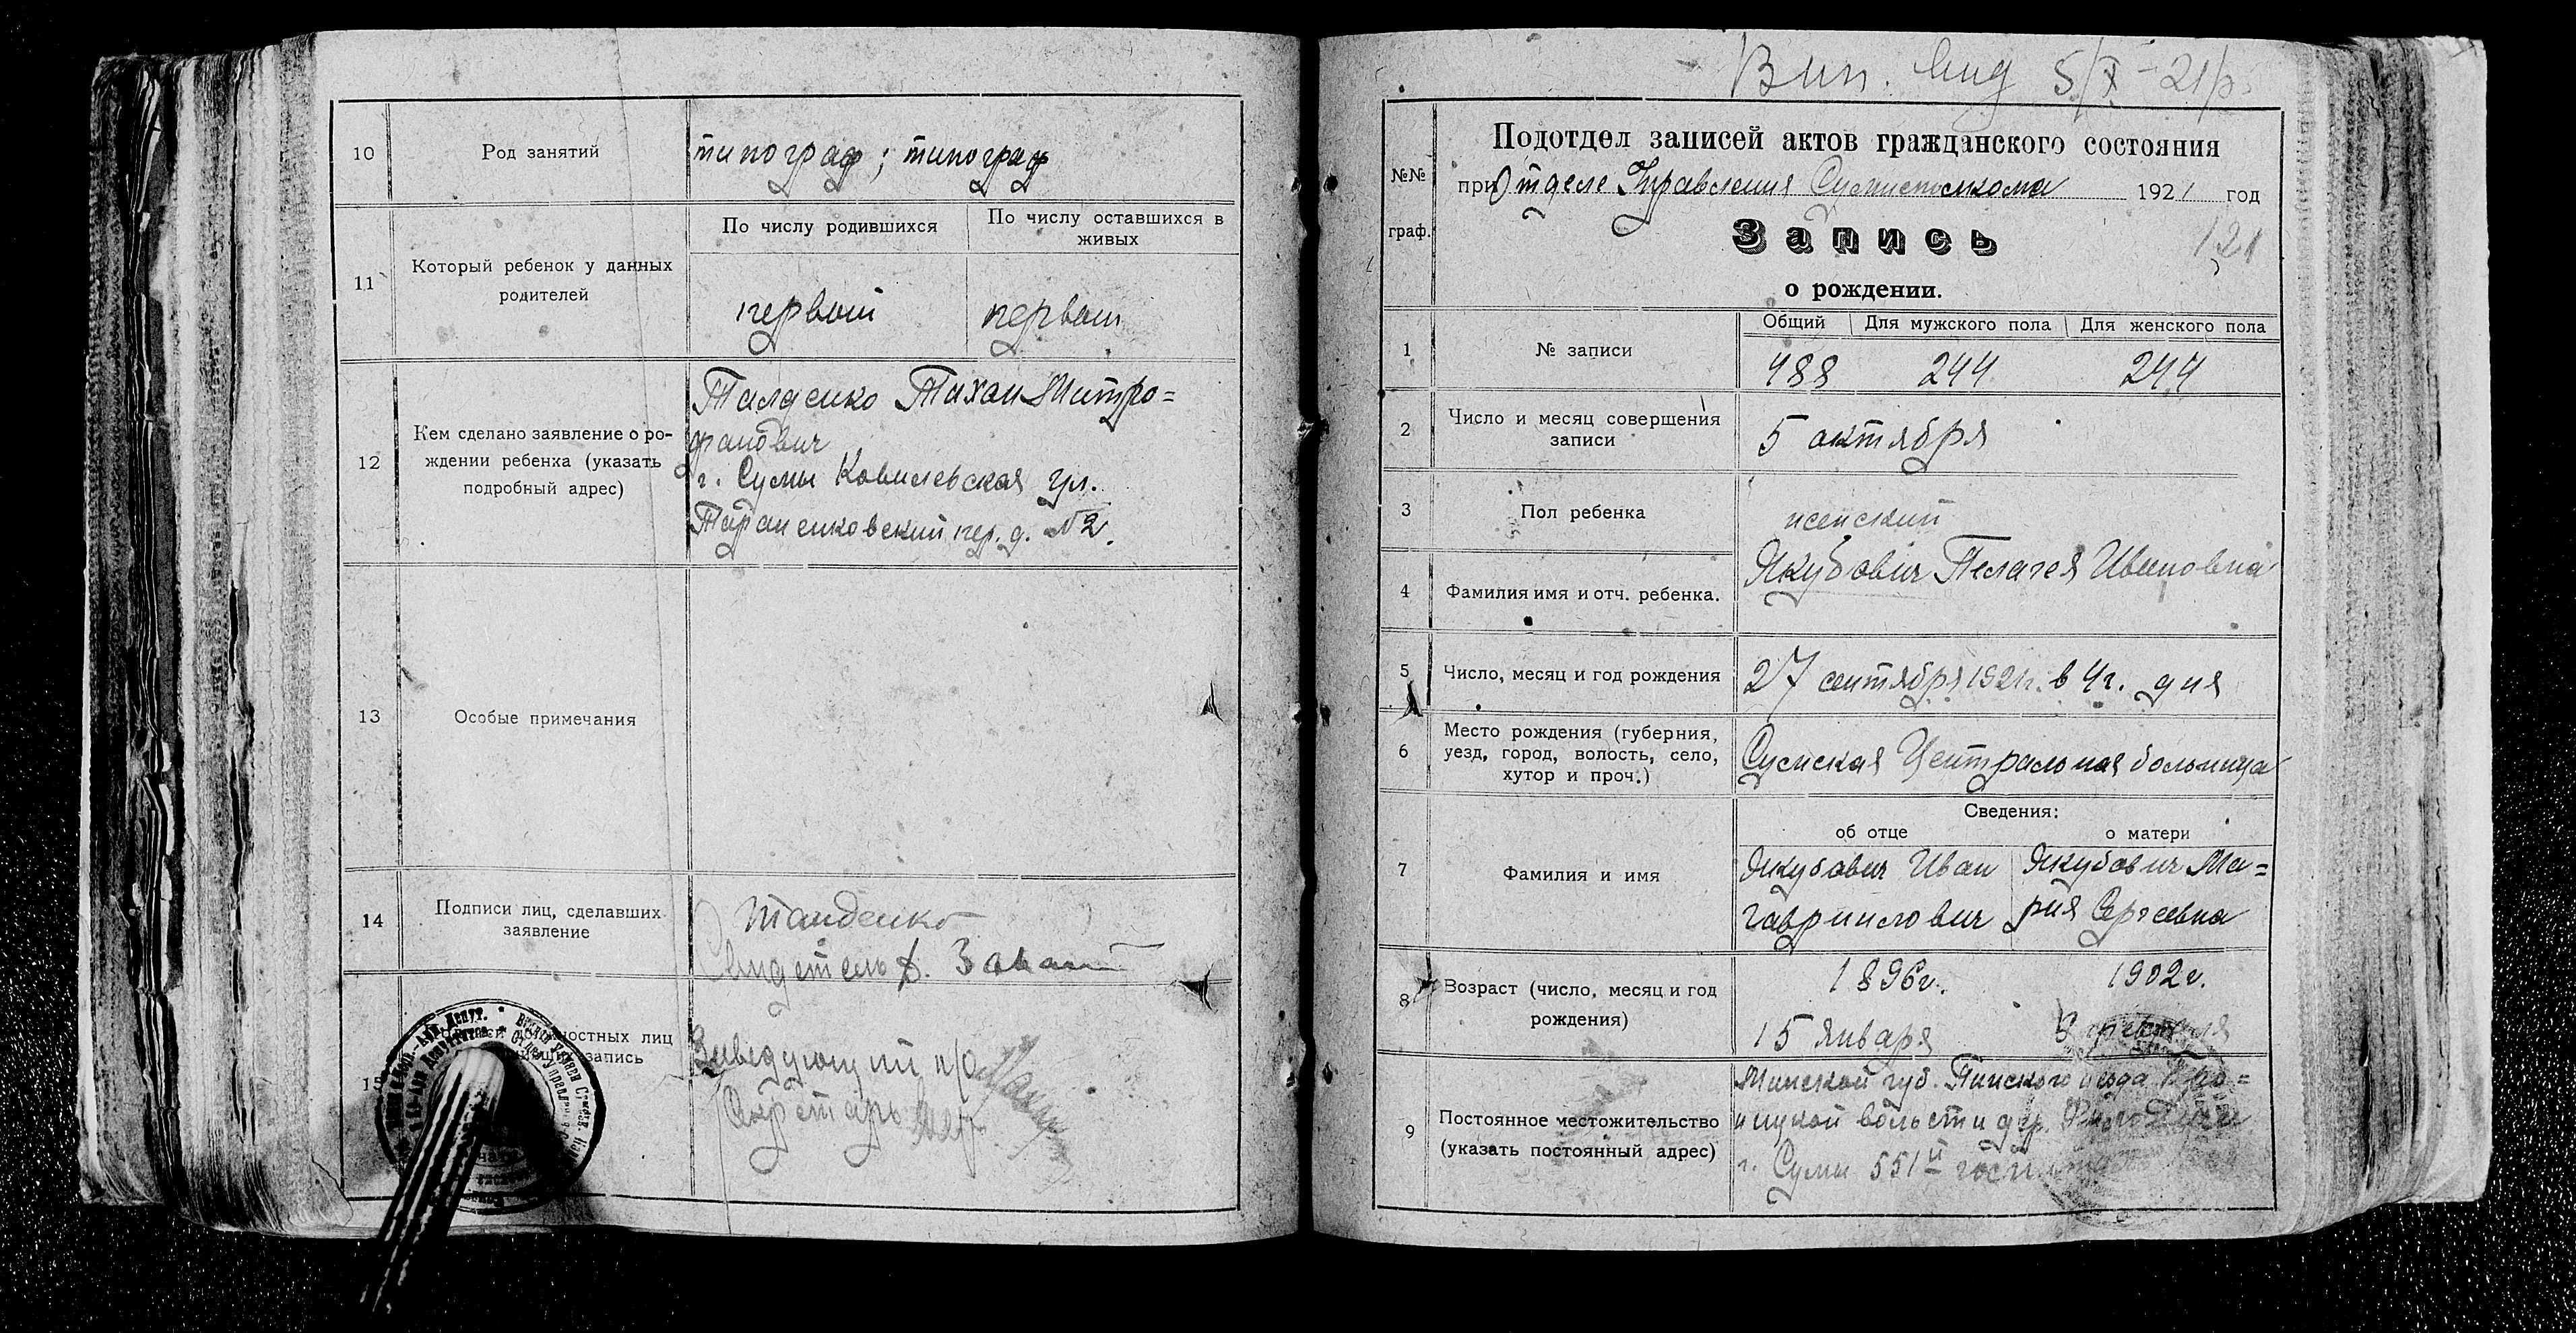 10
Род занятий
типограф; типограф
11
Который ребенок у данных
родителей
По числу родившихся
По числу оставшихся в
живых
первый
первый
12
Кем сделано заявление о ро-
ждении ребенка (указать
подробный адрес)
Тихон Митро=
фанович
г. Сумы Ковилевская ул.
Тараненковский пер. д. №2.
13
Особые примечания
14
Подписи лиц, сделавших
заявление
Свидетель
15
должностных лиц
запись
Заведующий п/о
Секретарь
5/X-21р.
Подотдел записей актов гражданского состояния
№№
граф.
при Отделе Управления 1921 год
Запись
121
о рождении.
1
№ записи
Общий
Для мужского пола
Для женского пола
488
244
244
2
Число и месяц совершения
записи
5 октября
3
Пол ребенка
женский
4
Фамилия имя и отч. ребенка.
Якубович Пелагея Ивановна
5
Число, месяц и год рождения
27 сентября 1921г. в 4г. дня
6
Место рождения (губерния,
уезд, город, волость, село,
хутор и проч.)
Сумская Центральная больница
7
Фамилия и имя
Сведения:
об отце
о матери
Якубович Иван
Гавриилович
Якубович Ма=
рия Сергеевна
8
Возраст (число, месяц и год
рождения)
1896г.
15 января
1902г.
9
Постоянное местожительство
(указать постоянный адрес)
Минской губ. Пинского уезда
волости дер.
г. Сумы 551й